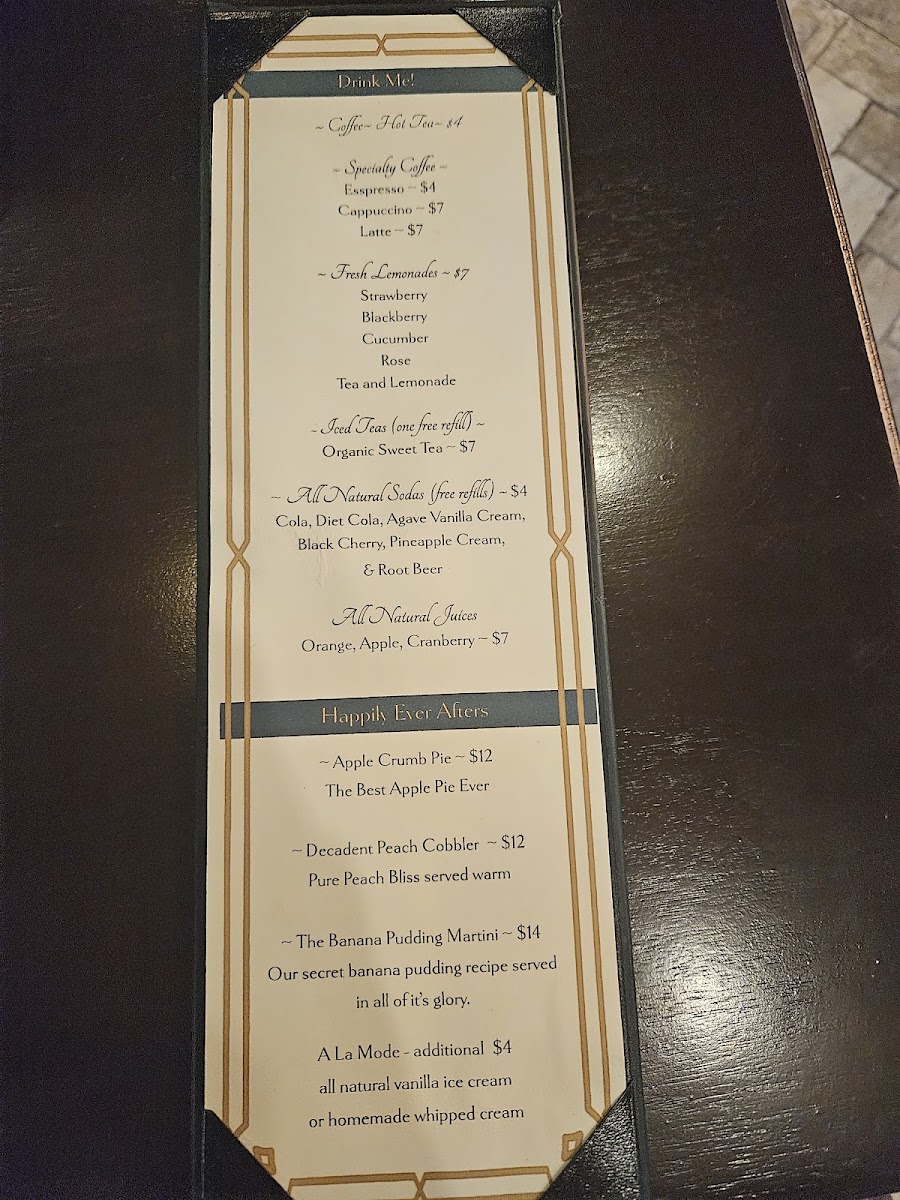 Drink Me!
~ Coffee~ Hot Tea~ $4
~ Specialty Coffee ~
Esspresso ~ $4
Cappuccino ~ $7
Latte ~ $7
~ Fresh Lemonades ~ $7
Strawberry
Blackberry
Cucumber
Rose
Tea and Lemonade
~ Iced Teas (one free refill) ~
Organic Sweet Tea ~ $7
~ All Natural Sodas (free refills) ~ $4
Cola, Diet Cola, Agave Vanilla Cream,
Black Cherry, Pineapple Cream,
& Root Beer
All Natural Juices
Orange, Apple, Cranberry ~ $7
Happily Ever Afters
~ Apple Crumb Pie ~ $12
The Best Apple Pie Ever
~ Decadent Peach Cobbler ~ $12
Pure Peach Bliss served warm
~ The Banana Pudding Martini ~ $14
Our secret banana pudding recipe served
in all of it's glory.
A La Mode - additional $4
all natural vanilla ice cream
or homemade whipped cream